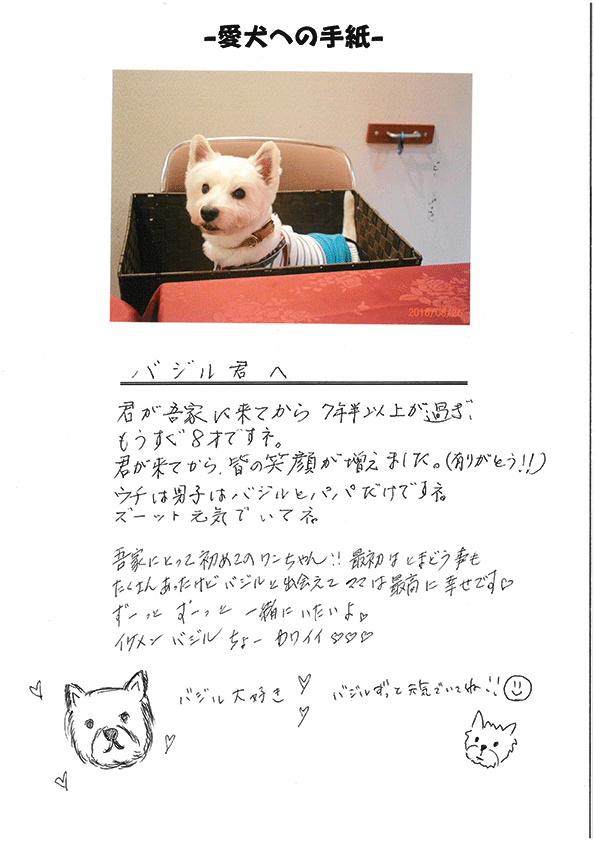 -愛犬への手紙-
2016/06/26
バジル君へ
君が吾家に来てから 7年半以上が過ぎ、
もうすぐ8才ですネ。
君が来てから、皆の笑顔が増えました。(有りがとう!!)
ウチは男子はバジルとパパだけですネ。
ズーット元気でいてネ。
吾家にとって初めてのワンちゃん!! 最初はとまどう事も
たくさんあったけど バジルと出会えて ママは最高に幸せです♡
ずーっと ずーっと 一緒にいたいよ♡
イケメン バジル ちょー カワイイ♡♡♡
バジル大好き
バジルずっと元気でいてね!!